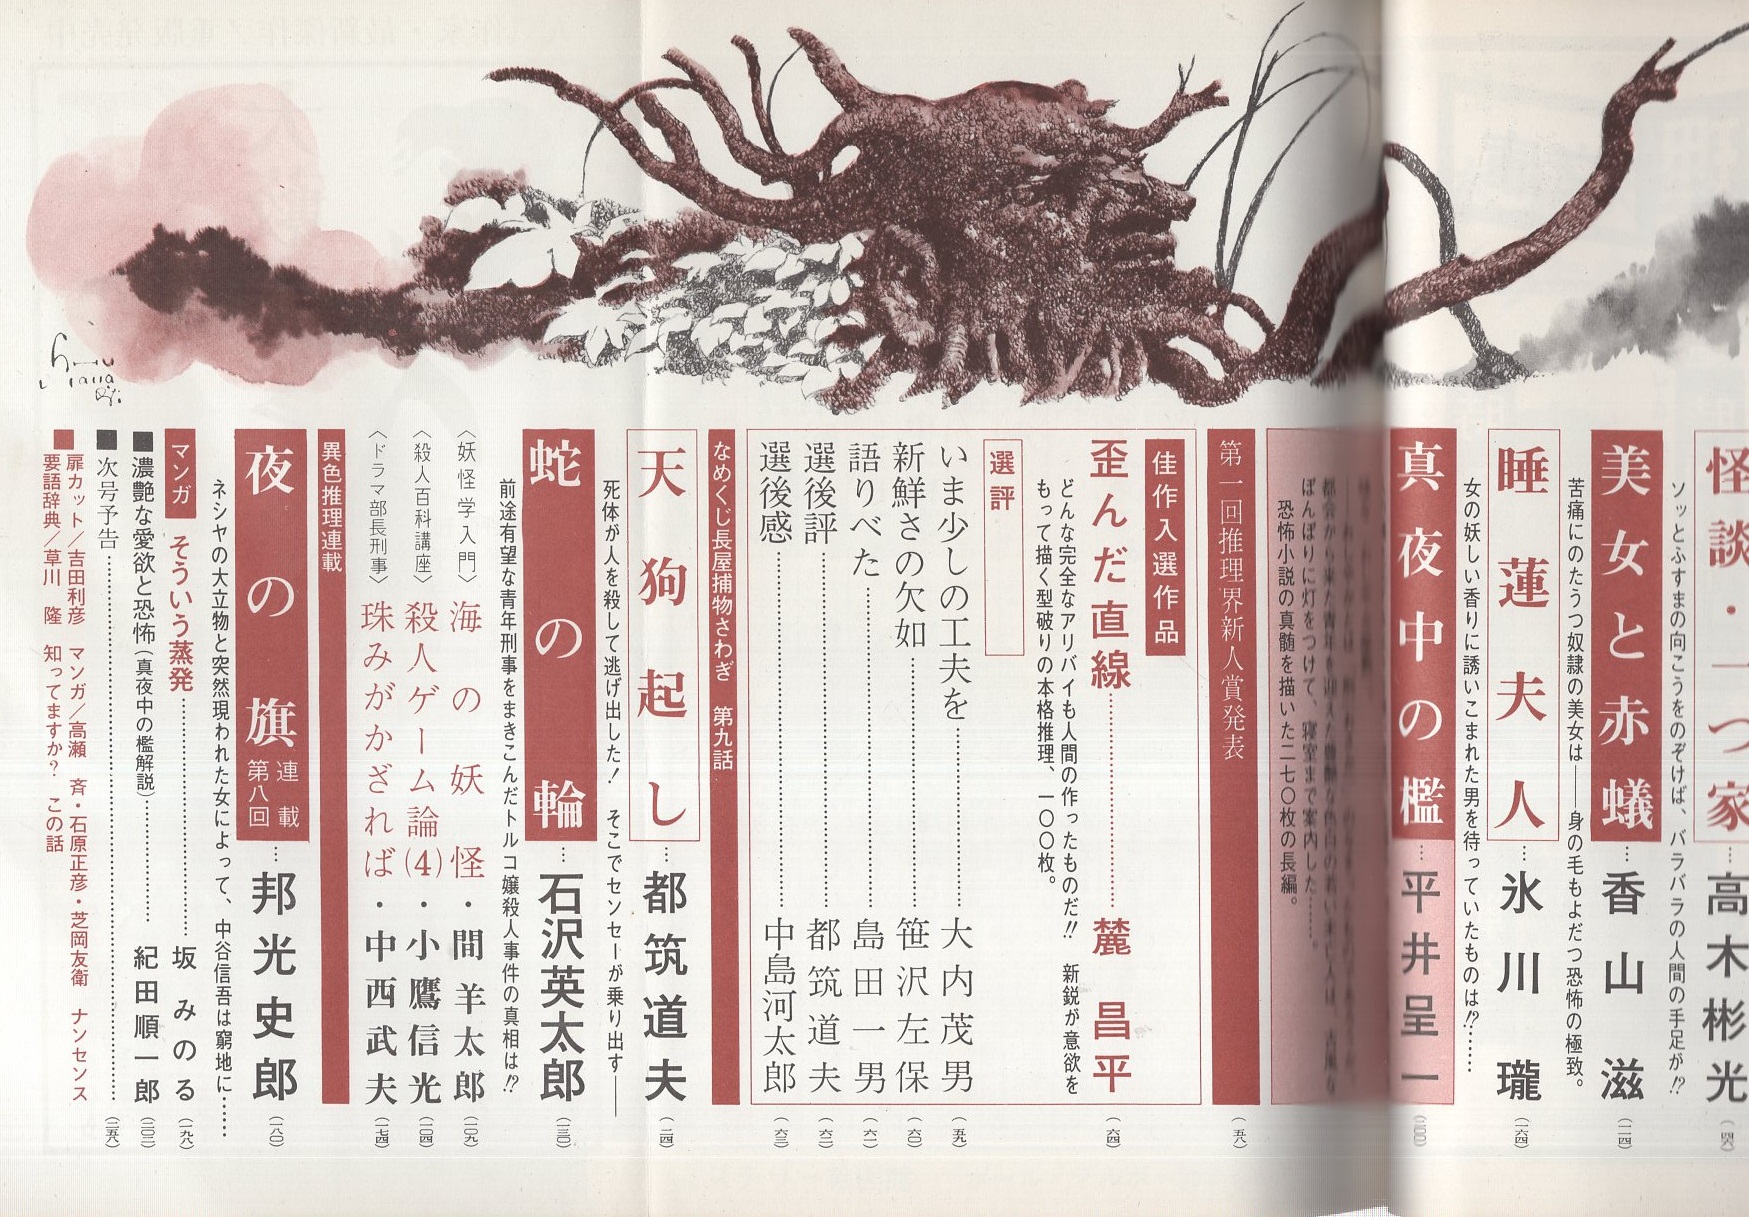 怪談・一つ家…高木彬光
ソッとふすまの向こうをのぞけば、バラバラの人間の手足が!?
美女と赤蟻…香山滋(一一四)
苦痛にのたうつ奴隷の美女は――身の毛もよだつ恐怖の極致。
睡蓮夫人…氷川瓏(一六四)
女の妖しい香りに誘いこまれた男を待っていたものは!?……
真夜中の檻…平井呈一(二〇〇)
ぼんぼりに灯をつけて、寝室まで案内した……。
恐怖小説の真髄を描いた二七〇枚の長編。
第一回推理界新人賞発表(五八)
佳作入選作品
歪んだ直線……麓昌平(六四)
どんな完全なアリバイも人間の作ったものだ!! 新鋭が意欲を
もって描く型破りの本格推理、一〇〇枚。
選評
いま少しの工夫を……大内茂男(五九)
新鮮さの欠如……笹沢左保(六〇)
語りべた……島田一男(六一)
選後評……都筑道夫(六二)
選後感……中島河太郎(六三)
なめくじ長屋捕物さわぎ 第九話
天狗起し…都筑道夫(二四)
死体が人を殺して逃げ出した! そこでセンセーが乗り出す――
蛇の輪…石沢英太郎(一三〇)
前途有望な青年刑事をまきこんだトルコ嬢殺人事件の真相は!?
〈妖怪学入門〉海の妖怪・間羊太郎(一〇九)
〈殺人百科講座〉殺人ゲーム論(4)・小鷹信光(一〇四)
〈ドラマ部長刑事〉珠みがかざれば・中西武夫(一七四)
異色推理連載
夜の旗 連載第八回…邦光史郎(一八〇)
ネシヤの大立物と突然現われた女によって、中谷信吾は窮地に……
マンガ そういう蒸発……坂みのる(一九八)
■濃艶な愛欲と恐怖(真夜中の檻解説)……紀田順一郎(二〇三)
■次号予告……(二五八)
■扉カット／吉田利彦 マンガ／高瀬 斉・石原正彦・芝岡友衛 ナンセンス
要語辞典／草川 隆 知ってますか? この話